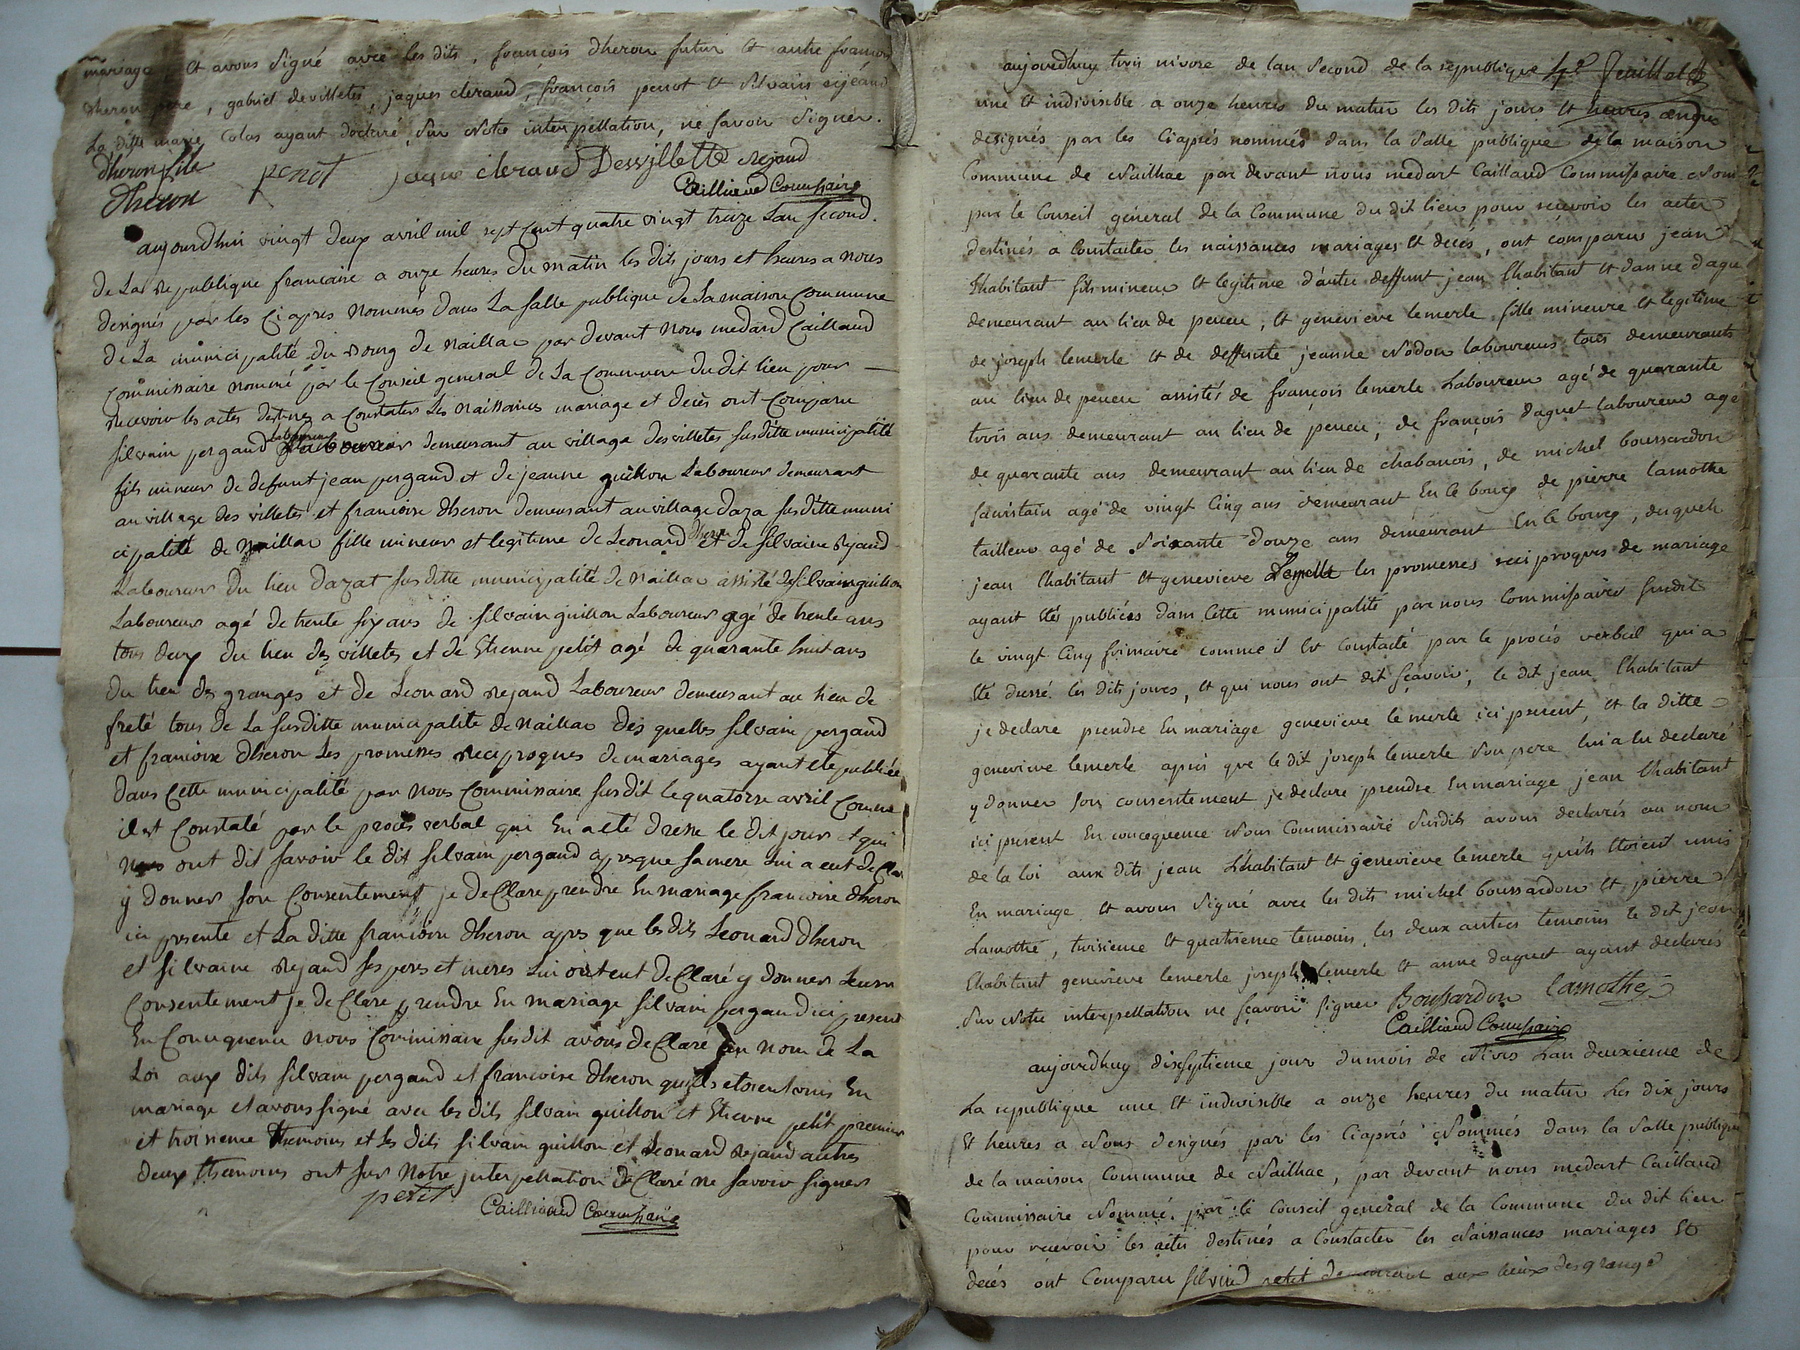 mariage, et avons signé avec les dits, françois dheron futur et autre françois
dheron pere, gabriel devilletes, jaques cleraud, françois penot et silvain rejeaud
la ditte marie Colas ayant declaré sur notre interpellation, ne savoir signer.
dheron fils
dheron penot jaque cleraud Desvillette rejaud
Cailliaud Commissaire
aujourdhui vingt deux avril mil sept cent quatre vingt treize Lan second.
de La republique francaise a onze heures du matin les dits jours et heures a nous
designés par les Ci apres nommés dans La salle publique de La maison Commune
de La municipalité du bourg de naillac par devant nous medard Caillaud
commissaire nommé par le Conseil general de La Commune du dit lieu pour
recevoir les actes destinés a Constater Les naissances mariage et decès ont Comparu
silvain pergaud Laboureur demeurant au village des villetes susditte municipalité
fils mineur de defunt jean pergaud et de jeanne guillon Laboureur demeurant
au village des villetes et francoise dheron demeurant au village daza susditte muni
cipalité de naillac fille mineur et legitime de Leonard dheron et de silvaine rejaud
Laboureur du lieu dazat susditte municipalité de naillac assisté de silvain guillon
Laboureur agé de trente six ans de silvain guillon Laboureur agé de trente ans
tous deux du lieu des villetes et de Etienne petit agé de quarante huit ans
du lieu des granges et de Leonard rejaud Laboureur demeurant au lieu de
freté tous de La susditte municipalite de naillac des quelles silvain pergaud
et francoise dheron Les promesses reciproques de mariages ayant été publiée
dans Cette municipalité par nous Commissaire susdit le quatorze avril Comme
il est Constaté par le procès verbal qui En a eté dressé le dit jour et qui
nous ont dit savoir le dit silvain pergaud apres que sa mere lui a eut declaré
y donner son Consentement je de Clare prendre En mariage francoise dheron
ici presente et La ditte francoise dheron apres que les dits Leonard dheron
et silvaine rejaud ses peres et meres Lui ont eut de Claré y donner Leurs
Consentement je de Clare prendre En mariage silvain pergaud ici present
En Consequence nous Commissaire susdit avons de Claré au nom de La
Loi aux dits silvain pergaud et francoise dheron quils etoient unis En
mariage et avons signé avec les dits silvain guillon et Etienne petit premier
et troisieme themoins et les dits silvain guillon et Leonard rejaud autres
deux themoins ont sur notre interpellation de Claré ne savoir signer
petit
Cailliaud Commissaire
aujourdhuy trois nivose de lan second de la republique 4e feuillet
une et indivisible a onze heures du matin les dits jours et heures a nous
designés par les Ciaprés nommés dans la salle publique de la maison
Commune de Nailhac par devant nous medart Caillaud Commissaire nom
par le Conseil général de la Commune du dit lieu pour recevoir les actes
destinés a Constater les naissances mariages et decés, ont comparus jean
Lhabitant fils mineur et legitime d'autre deffunt jean lhabitant et danne dague
demeurant au lieu de peueu, et genevieve lemerle fille mineure et legitime
de joseph lemerle et de deffunte jeanne Nadou laboureurs tous demeurants
au lieu de peueu assistés de françois lemerle Laboureur agé de quarante
trois ans demeurant au lieu de peueu; de françois daguet laboureur agé
de quarante ans demeurant au lieu de chabanois, de michel boussardon
agé de vingt Cinq ans demeurant En le bourg de pierre lamothe
tailleur agé de soixante douze ans demeurant En le bourg, desquels
jean lhabitant et genevieve lemerle les promesses reciproques de mariage
ayant étés publiées dans Cette municipalité par nous Commissaires susdit
le vingt Cinq frimaire comme il Est constaté par le procés verbal qui a
été dressé les dits jours, et qui nous ont dit sçavoir, le dit jean lhabitant
je declare prendre En mariage genevieve lemerle ici present, et la ditte
genevieve lemerle aprés que le dit joseph lemerle son pere lui a Eu declaré
y donner son consentement je declare prendre En mariage jean lhabitant
ici present En concequence Nous Commissaire susdits avons declarés au nom
de la loi aux dits jean Lhabitant et genevieve lemerle quils Etoient unis
En mariage et avons signé avec les dits michel boussardon et pierre
Lamothe, troisieme et quatrieme temoins, les deux autres temoins le dit jean
Lhabitant genevieve lemerle joseph lemerle et anne daguet ayant declarés
sur Notre interpellation ne sçavoir signer Boussardon Lamothe
Cailliaud Commissaire
aujourdhuy dixseptieme jour du mois de Nivos Lan deuxieme de
La republique une et indivisible a onze heures du matin Les dix jours
et heures a Nous designés par les Ciaprés Nommés dans la salle publique
de la maison Commune de Nailhac, par devant nous medart Caillaud
Commissaire Nommé par le Conseil general de la Commune du dit lieu
pour recevoir les actes destinés a Constater les Naissances mariages Et
decés ont Comparu silvind petit demeurant aux lieux des grange